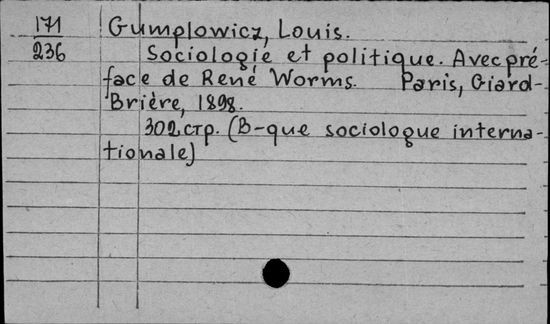 171
236
Gumplowicz, Louis.
Sociologie et politique. Avec pré-
face de René Worms. Paris, Giard-
Brière, 1898.
302 стр. (B-que sociologue interna-
tionale)